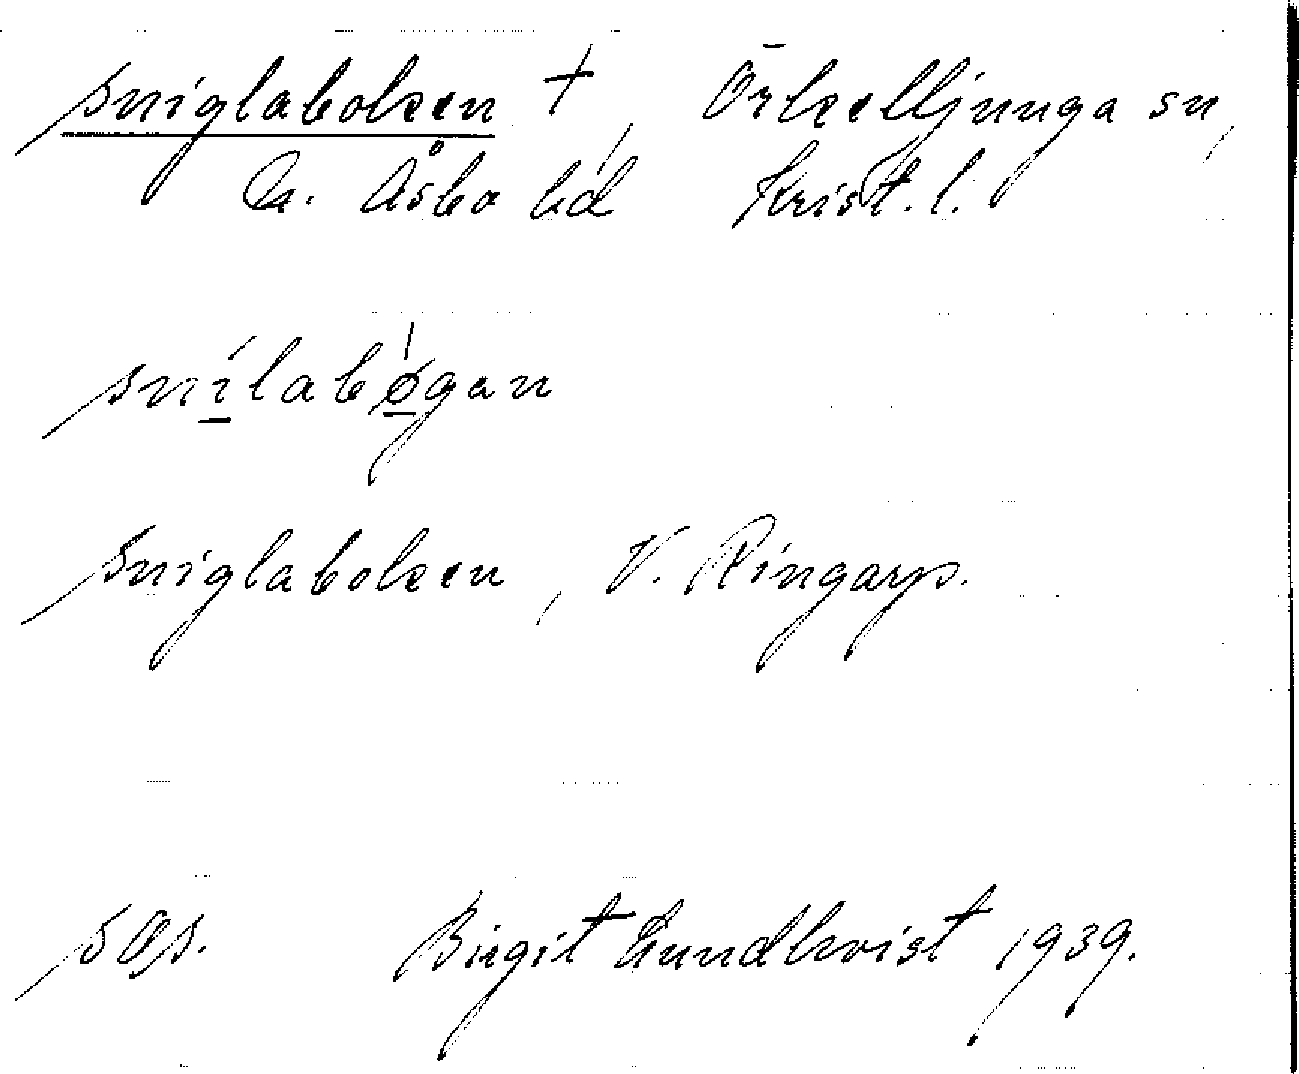 sniglaboken +, Örkelljunga sn,
N. Åsbo hd Krist. l.
snilabøgan
sniglaboken, V. Ringarp.
sas. Birgit Lundkvist 1939.